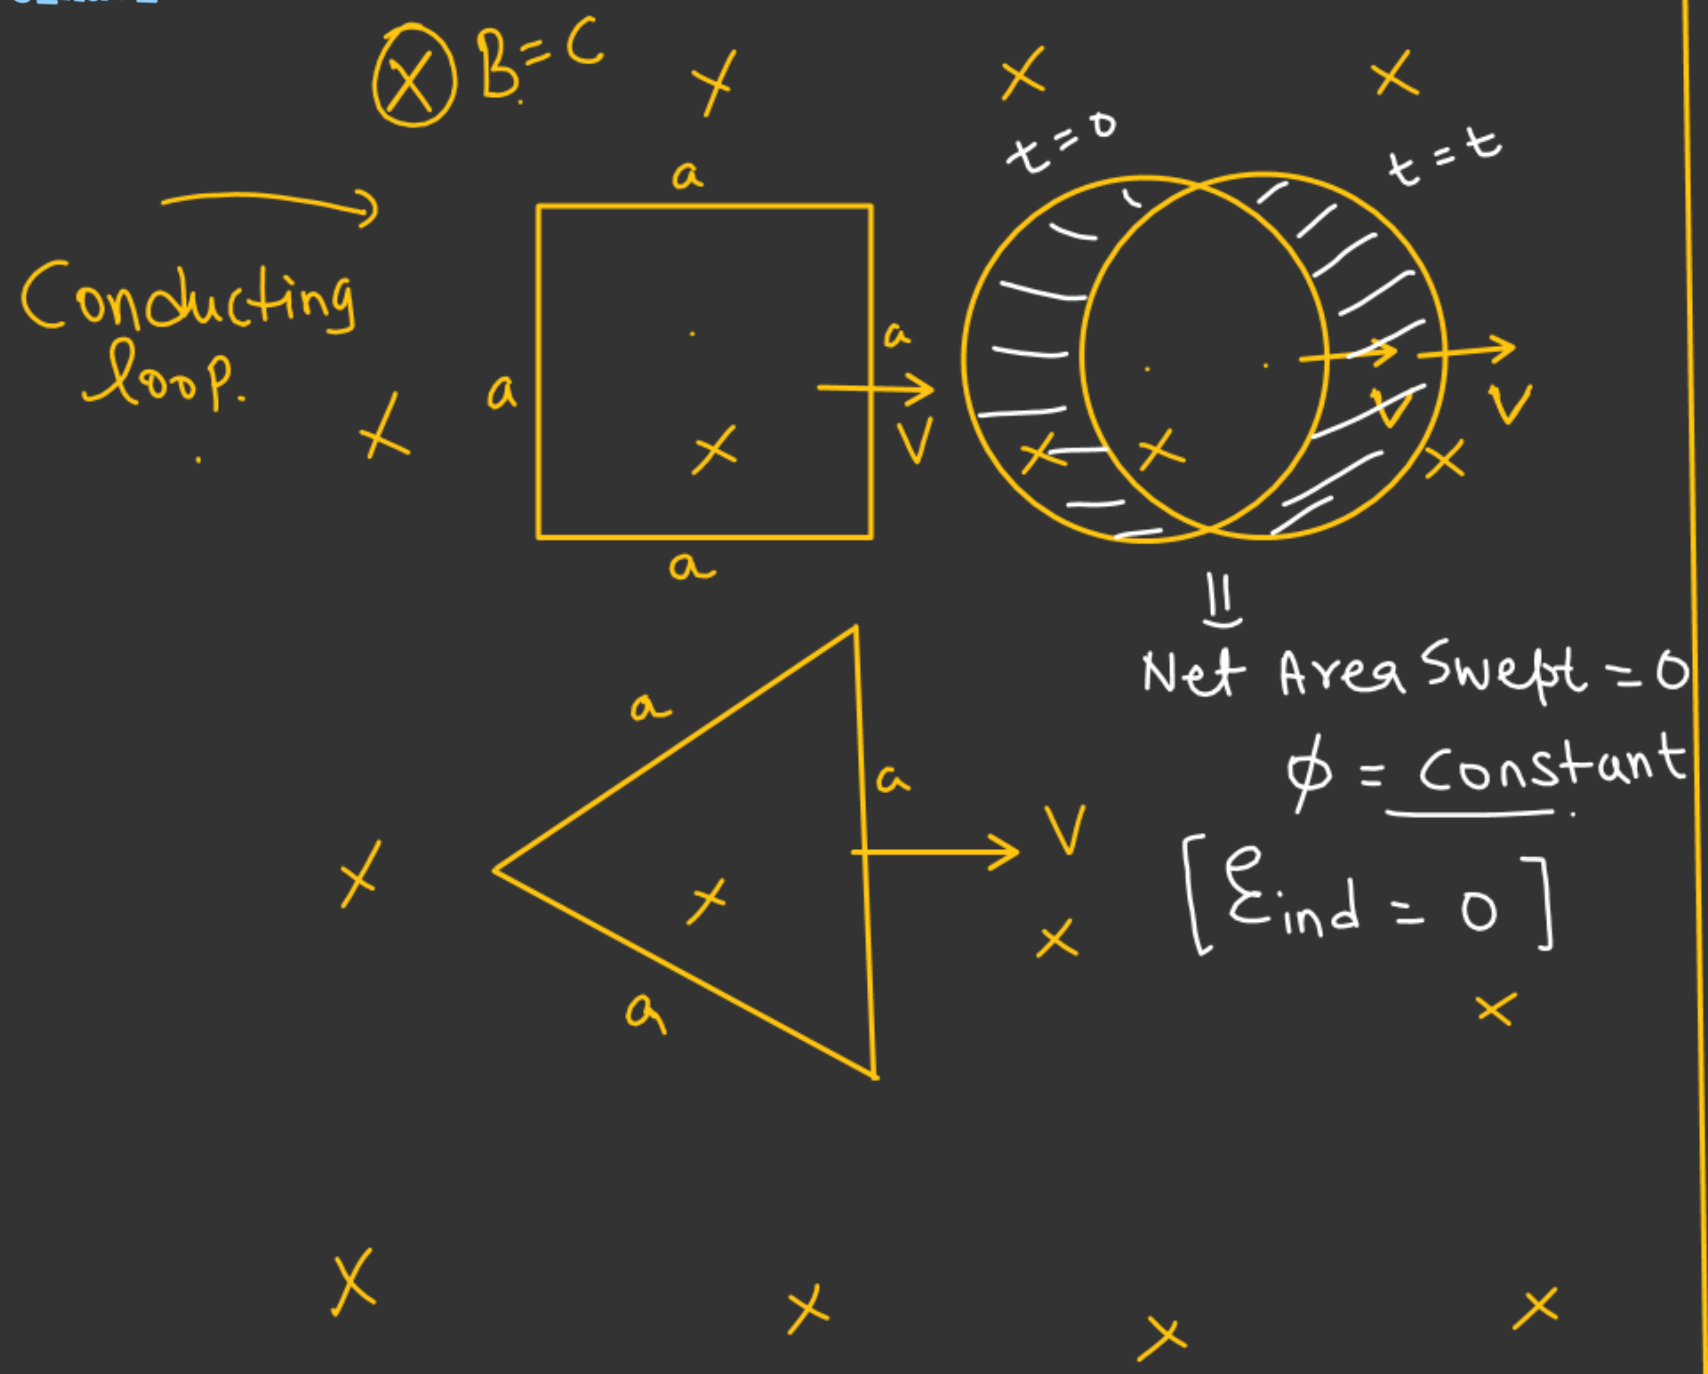 ⊗ B = C
t = 0
t = t
Conducting
loop.
a
a
a
a
V
V
V
Net Area Swept = 0
ϕ = Constant
[Ɛind = 0]
a
a
a
V